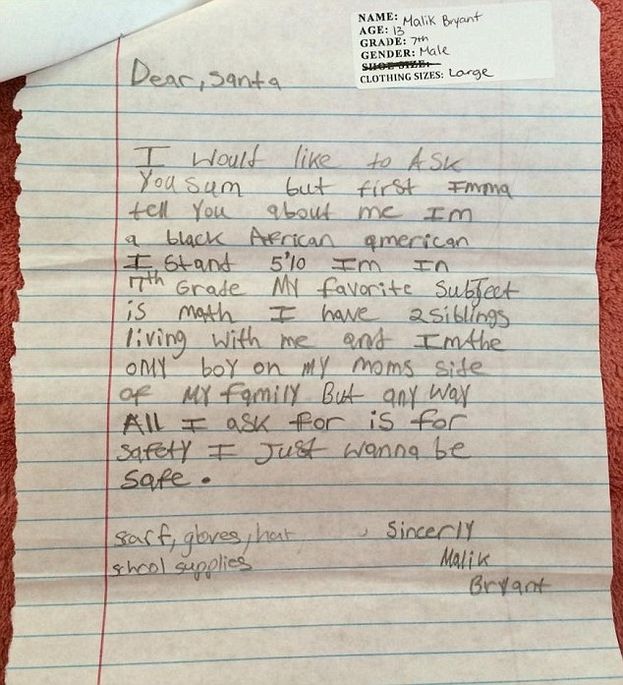 NAME: Malik Bryant
AGE: 13
GRADE: 7th
GENDER: Male
SHOE SIZE:
CLOTHING SIZES: Large
Dear, Santa
I would like to ASK
You sum but first Imma
tell You about me Im
a black African american
I Stand 5'10 Im In
7th Grade MY favorite Subject
is math I have 2 siblings
living with me and Im the
only boy on my moms side
of MY family But any way
All I ask for is for
safety I Just wanna be
safe.
scarf, gloves, hat
school supplies
Sincerly
Malik
Bryant